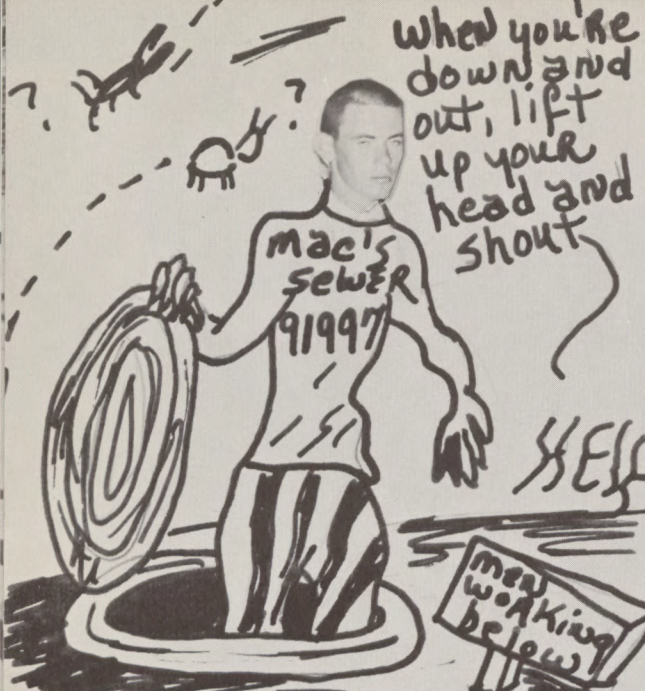 When you're
down and
out, lift
up your
head and
shout
?
?
mac's
sewer
91997
men
working
below